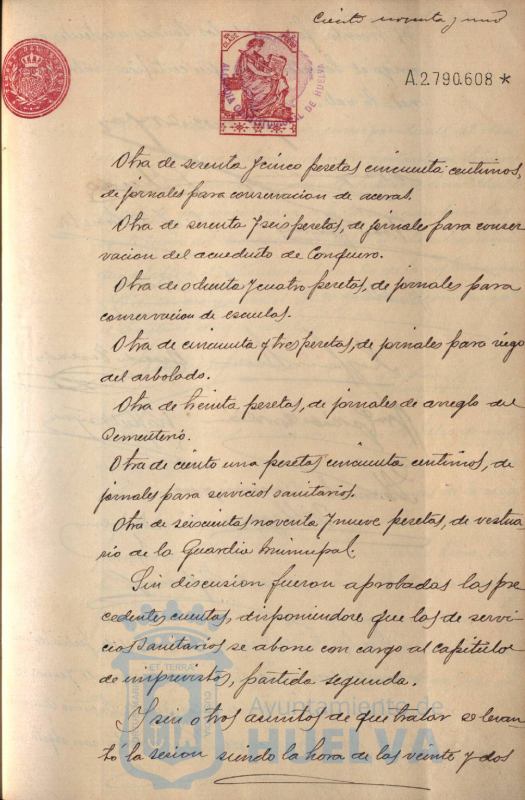 Ciento noventa y uno
A.2.790.608 *
ALCALDIA CONSTITUCIONAL DE HUELVA
Otra de setenta y cinco pesetas cincuenta centimos,
de jornales para conservacion de aceras.
Otra de setenta y seis pesetas, de jornales para conser
vacion del acueducto de Conquero.
Otra de ochenta y cuatro pesetas, de jornales para
conservacion de escuelas.
Otra de cincuenta y tres pesetas, de jornales para riego
del arbolado.
Otra de treinta pesetas, de jornales de arreglo del
Cementerio.
Otra de ciento una pesetas cincuenta centimos, de
jornales para servicios sanitarios.
Otra de seiscientas noventa y nueve pesetas, de vestua
rio de la Guardia Municipal.
Sin discusion fueron aprobadas las pre
cedentes cuentas, disponiendose que las de servi
cios sanitarios se abone con cargo al capitulo
de imprevistos, partida segunda.
Y sin otros asuntos de que tratar se levan
tó la sesion siendo la hora de las veinte y dos
ET TERRÆ
Ayuntamiento de
HUELVA